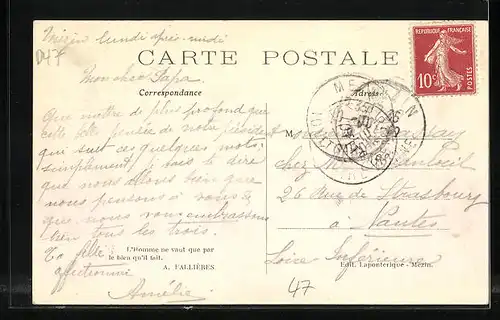 Mézin lundi après-midi
D47
CARTE POSTALE
RÉPUBLIQUE FRANÇAISE
10c
POSTES
Mon cher Papa,
Correspondance
Adresse
Que mettre de plus profond que
cette belle pensée de notre président
qui suit ces quelques mots.
simplement, je vais te dire
que nous allons bien que
nous pensons à vous
que nous vous embrassons
bien tous les trois.
Ta fille
affectionnée
Amélie
L'Homme ne vaut que par
le bien qu'il fait.
A. FALLIÈRES
MEZIN
LOT
M
chez M
26 rue de Strasbourg
à Nantes
Loire Inférieure
Edit. Laponterique - Mézin.
47